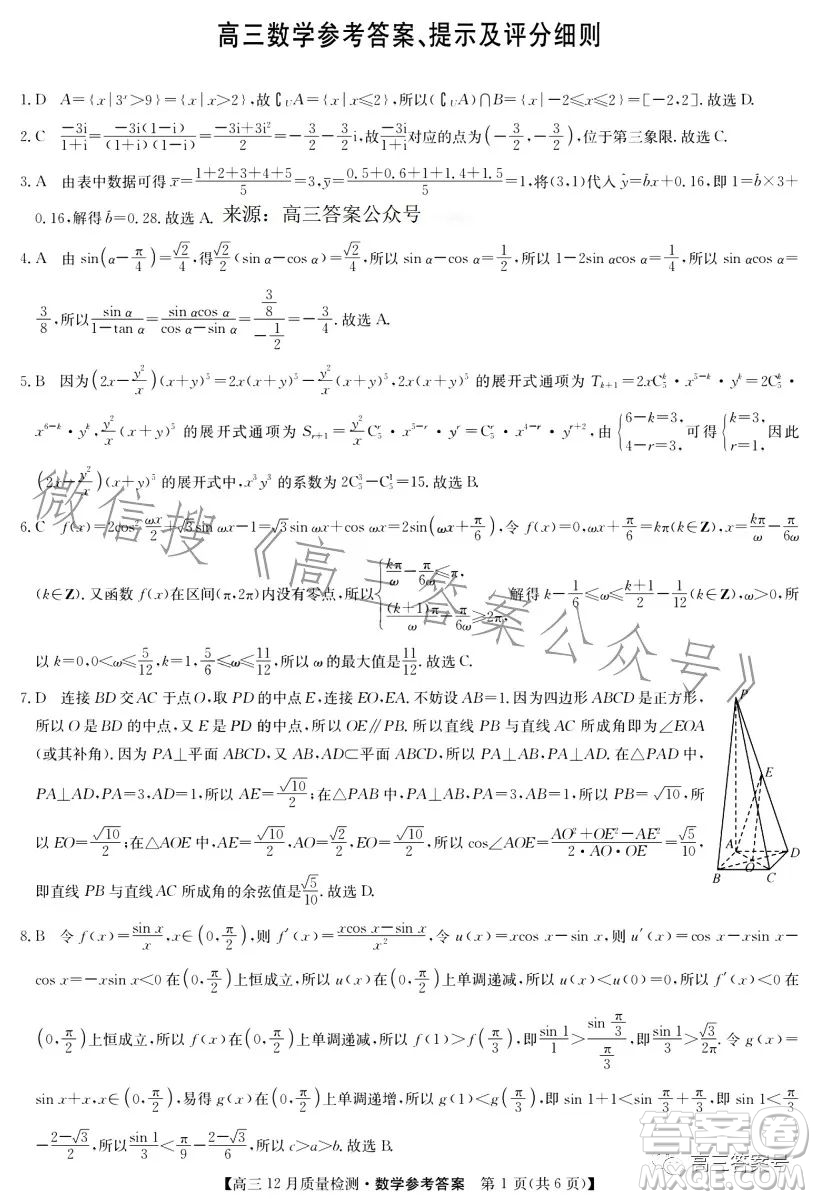 高三数学参考答案、提示及评分细则
1. D　A={x|3ˣ>9}={x|x>2},故∁ᵤA={x|x≤2},所以(∁ᵤA)∩B={x|-2≤x≤2}=[-2,2].故选 D.
2. C　$\frac{-3i}{1+i}=\frac{-3i(1-i)}{(1+i)(1-i)}=\frac{-3i+3i^2}{2}=-\frac{3}{2}-\frac{3}{2}i$,故$\frac{-3i}{1+i}$对应的点为$\left(-\frac{3}{2},-\frac{3}{2}\right)$,位于第三象限.故选 C.
3. A　由表中数据可得$\bar{x}=\frac{1+2+3+4+5}{5}=3,\bar{y}=\frac{0.5+0.6+1+1.4+1.5}{5}=1$,将(3,1)代入$\hat{y}=\hat{b}x+0.16$,即$1=\hat{b}×3+$
$0.16$,解得$\hat{b}=0.28$.故选 A. 来源：高三答案公众号
4. A　由$\sin\left(α-\frac{π}{4}\right)=\frac{\sqrt{2}}{4}$,得$\frac{\sqrt{2}}{2}(\sin α-\cos α)=\frac{\sqrt{2}}{4}$,所以$\sin α-\cos α=\frac{1}{2}$,所以$1-2\sin α\cos α=\frac{1}{4}$,所以$\sin α\cos α=$
$\frac{3}{8}$,所以$\frac{\sin α}{1-\tan α}=\frac{\sin α\cos α}{\cos α-\sin α}=\frac{\frac{3}{8}}{-\frac{1}{2}}=-\frac{3}{4}$.故选 A.
5. B　因为$\left(2x-\frac{y^2}{x}\right)(x+y)^5=2x(x+y)^5-\frac{y^2}{x}(x+y)^5,2x(x+y)^5$的展开式通项为$T_{k+1}=2xC_5^k·x^{5-k}·y^k=2C_5^k·$
$x^{6-k}·y^k,\frac{y^2}{x}(x+y)^5$的展开式通项为$S_{r+1}=\frac{y^2}{x}C_5^r·x^{5-r}·y^r=C_5^r·x^{4-r}·y^{r+2}$,由$\begin{cases}6-k=3,\\4-r=3,\end{cases}$可得$\begin{cases}k=3,\\r=1,\end{cases}$因此
$\left(2x-\frac{y^2}{x}\right)(x+y)^5$的展开式中,$x^3y^3$的系数为$2C_5^3-C_5^1=15$.故选 B.
6. C　$f(x)=2\cos^2\frac{ωx}{2}+\sqrt{3}\sin ωx-1=\sqrt{3}\sin ωx+\cos ωx=2\sin\left(ωx+\frac{π}{6}\right)$,令$f(x)=0,ωx+\frac{π}{6}=kπ(k∈\mathbf{Z}),x=\frac{kπ}{ω}-\frac{π}{6ω}$
$(k∈\mathbf{Z})$.又函数$f(x)$在区间$(π,2π)$内没有零点,所以$\begin{cases}\frac{kπ}{ω}-\frac{π}{6ω}≤π,\\\frac{(k+1)π}{ω}-\frac{π}{6ω}≥2π,\end{cases}$解得$k-\frac{1}{6}≤ω≤\frac{k+1}{2}-\frac{1}{12}(k∈\mathbf{Z}),ω>0$,所
以$k=0,0<ω≤\frac{5}{12},k=1,\frac{5}{6}≤ω≤\frac{11}{12}$,所以ω的最大值是$\frac{11}{12}$.故选 C.
7. D　连接 BD 交 AC 于点 O,取 PD 的中点 E,连接 EO,EA.不妨设 AB=1.因为四边形 ABCD 是正方形,
所以 O 是 BD 的中点,又 E 是 PD 的中点,所以 OE∥PB.所以直线 PB 与直线 AC 所成角即为∠EOA
(或其补角).因为 PA⊥平面 ABCD,又 AB,AD⊂平面 ABCD,所以 PA⊥AB,PA⊥AD.在△PAD 中,
PA⊥AD,PA=3,AD=1,所以$AE=\frac{\sqrt{10}}{2}$;在△PAB 中,PA⊥AB,PA=3,AB=1,所以$PB=\sqrt{10}$,所
以$EO=\frac{\sqrt{10}}{2}$;在△AOE 中,$AE=\frac{\sqrt{10}}{2},AO=\frac{\sqrt{2}}{2},EO=\frac{\sqrt{10}}{2}$,所以$\cos∠AOE=\frac{AO^2+OE^2-AE^2}{2·AO·OE}=\frac{\sqrt{5}}{10}$,
即直线 PB 与直线 AC 所成角的余弦值是$\frac{\sqrt{5}}{10}$.故选 D.
P
E
A
D
O
B
C
8. B　令$f(x)=\frac{\sin x}{x},x∈\left(0,\frac{π}{2}\right)$,则$f'(x)=\frac{x\cos x-\sin x}{x^2}$,令$u(x)=x\cos x-\sin x$,则$u'(x)=\cos x-x\sin x-$
$\cos x=-x\sin x<0$在$\left(0,\frac{π}{2}\right)$上恒成立,所以$u(x)$在$\left(0,\frac{π}{2}\right)$上单调递减,所以$u(x)<u(0)=0$,所以$f'(x)<0$在
$\left(0,\frac{π}{2}\right)$上恒成立,所以$f(x)$在$\left(0,\frac{π}{2}\right)$上单调递减,所以$f(1)>f\left(\frac{π}{3}\right)$,即$\frac{\sin 1}{1}>\frac{\sin\frac{π}{3}}{\frac{π}{3}}$,即$\frac{\sin 1}{3}>\frac{\sqrt{3}}{2π}$.令$g(x)=$
$\sin x+x,x∈\left(0,\frac{π}{2}\right)$,易得$g(x)$在$\left(0,\frac{π}{2}\right)$上单调递增,所以$g(1)<g\left(\frac{π}{3}\right)$,即$\sin 1+1<\sin\frac{π}{3}+\frac{π}{3}$,即$\sin 1<\frac{π}{3}$
$-\frac{2-\sqrt{3}}{2}$,所以$\frac{\sin 1}{3}<\frac{π}{9}-\frac{2-\sqrt{3}}{6}$,所以$c>a>b$.故选 B.
微信搜《高三答案公众号》
答案圈
高三答案号
【高三 12 月质量检测·数学参考答案　第 1 页(共 6 页)】